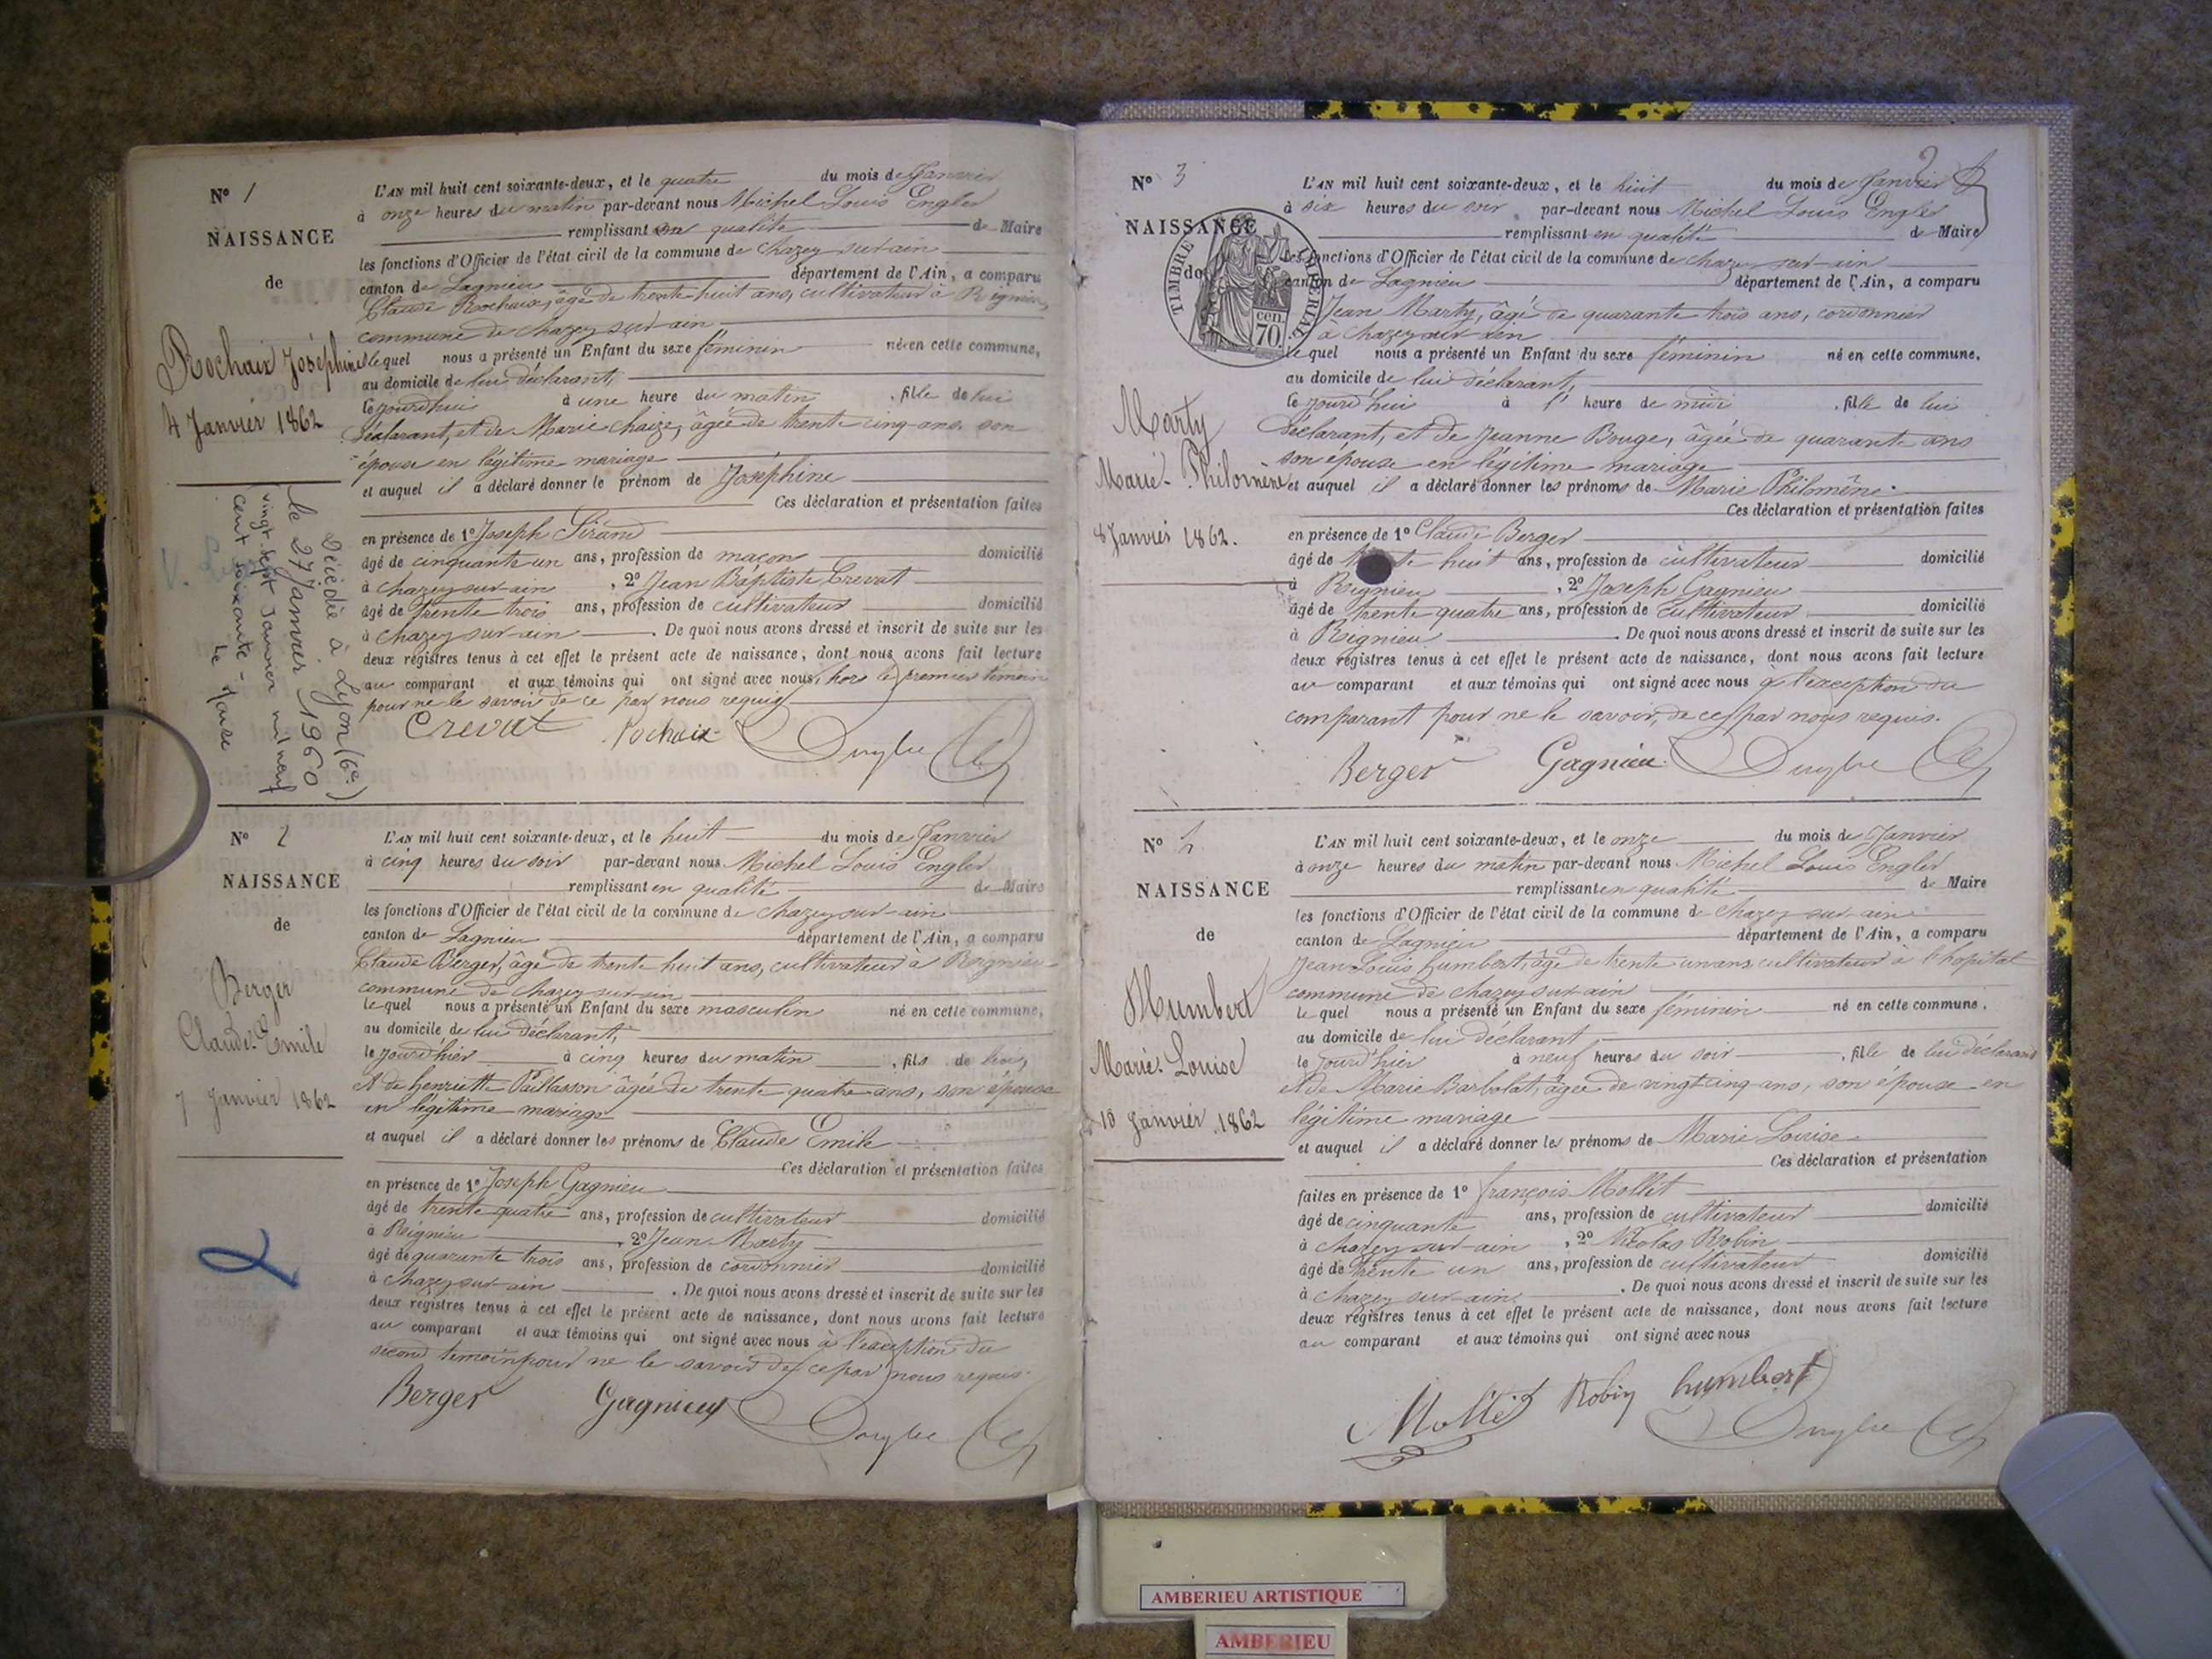 N° 1
NAISSANCE
de
Rochaix Joséphine
4 Janvier 1862
Décédée à Lyon (6e)
le 27 Janvier 1960
vingt sept Janvier mil neuf
cent soixante -
le Maire
L'AN mil huit cent soixante-deux, et le quatre du mois de Janvier
à onze heures du matin par-devant nous Michel Louis Engler
remplissant en qualité de Maire
les fonctions d'Officier de l'état civil de la commune de Chazey sur ain
canton de Lagnieu département de l'Ain, a comparu
Claude Rochaix, âgé de trente huit ans, cultivateur à Rignieu,
commune de chazey sur ain
lequel nous a présenté un Enfant du sexe féminin né en cette commune,
au domicile de lui déclarant,
le jourd'hui à une heure du matin , fille de lui
déclarant, et de Marie Chaize, âgée de trente cinq ans son
épouse en légitime mariage
et auquel il a déclaré donner le prénom de Joséphine
Ces déclaration et présentation faites
en présence de 1° Joseph Sirand
âgé de cinquante un ans, profession de maçon domicilié
à chazey sur-ain , 2° Jean Baptiste Crevat
âgé de trente trois ans, profession de cultivateur domicilié
à chazey sur-ain . De quoi nous avons dressé et inscrit de suite sur les
deux registres tenus à cet effet le présent acte de naissance, dont nous avons fait lecture
au comparant et aux témoins qui ont signé avec nous, hors le premier témoin
pour ne le savoir de ce par nous requis
Crevat Rochaix
N° 2
NAISSANCE
de
Berger
Claude-Emile
7 Janvier 1862
L'AN mil huit cent soixante-deux, et le huit du mois de Janvier
à cinq heures du soir par-devant nous Michel Louis Engler
remplissant en qualité de Maire
les fonctions d'Officier de l'état civil de la commune de chazey sur-ain
canton de Lagnieu département de l'Ain, a comparu
Claude Berger, âgé de trente huit ans, cultivateur à Rignieu
commune de chazey sur-ain
lequel nous a présenté un Enfant du sexe masculin né en cette commune,
au domicile de lui déclarant,
le jourd'hier à cinq heures du matin , fils de lui,
et de henriette Paillasson âgée de trente quatre ans, son épouse
en légitime mariage
et auquel il a déclaré donner les prénoms de Claude Emile
Ces déclaration et présentation faites
en présence de 1° Joseph Gagnieu
âgé de trente quatre ans, profession de cultivateur domicilié
à Reignieu , 2° Jean Marty
âgé de quarante trois ans, profession de cordonnier domicilié
à chazey sur-ain . De quoi nous avons dressé et inscrit de suite sur les
deux registres tenus à cet effet le présent acte de naissance, dont nous avons fait lecture
au comparant et aux témoins qui ont signé avec nous à l'exception du
second témoin pour ne le savoir de ce par nous requis.
Berger Gagnieu
2
N° 3
NAISSANCE
de
TIMBRE IMPERIAL
70 cen.
Marty
Marie-Philomène
8 Janvier 1862.
L'AN mil huit cent soixante-deux, et le huit du mois de Janvier
à six heures du soir par-devant nous Michel Louis Engler
remplissant en qualité de Maire
les fonctions d'Officier de l'état civil de la commune de chazey sur-ain
canton de Lagnieu département de l'Ain, a comparu
Jean Marty, âgé de quarante trois ans, cordonnier
à chazey sur ain
lequel nous a présenté un Enfant du sexe féminin né en cette commune,
au domicile de lui déclarant,
le jourd'hui à l' heure de midi , fille de lui
déclarant, et de Jeanne Bouge, âgée de quarante ans
son épouse en légitime mariage
et auquel il a déclaré donner les prénoms de Marie Philomène
Ces déclaration et présentation faites
en présence de 1° Claude Berger
âgé de trente huit ans, profession de cultivateur domicilié
à Rignieu , 2° Joseph Gagnieu
âgé de trente quatre ans, profession de cultivateur domicilié
à Reignieu . De quoi nous avons dressé et inscrit de suite sur les
deux registres tenus à cet effet le présent acte de naissance, dont nous avons fait lecture
au comparant et aux témoins qui ont signé avec nous à l'exception du
comparant pour ne le savoir, de ce par nous requis.
Berger Gagnieu
N° 4
NAISSANCE
de
Humbert
Marie-Louise
10 Janvier 1862
L'AN mil huit cent soixante-deux, et le onze du mois de Janvier
à onze heures du matin par-devant nous Michel Louis Engler
remplissant en qualité de Maire
les fonctions d'Officier de l'état civil de la commune de chazey sur-ain
canton de Lagnieu département de l'Ain, a comparu
Jean Louis humbert, âgé de trente un ans cultivateur à l'hopital
commune de chazey sur ain
lequel nous a présenté un Enfant du sexe féminin né en cette commune,
au domicile de lui déclarant
le jourd'hier à neuf heures du soir , fille de lui déclarant
et de Marie Barbolat, âgée de vingt cinq ans, son épouse en
légitime mariage
et auquel il a déclaré donner les prénoms de Marie Louise
Ces déclaration et présentation
faites en présence de 1° françois Mollet
âgé de cinquante ans, profession de cultivateur domicilié
à chazey sur-ain , 2° Nicolas Robin
âgé de trente un ans, profession de cultivateur domicilié
à chazey sur-ain . De quoi nous avons dressé et inscrit de suite sur les
deux registres tenus à cet effet le présent acte de naissance, dont nous avons fait lecture
au comparant et aux témoins qui ont signé avec nous
Mollet Robin humbert
AMBERIEU ARTISTIQUE
AMBERIEU